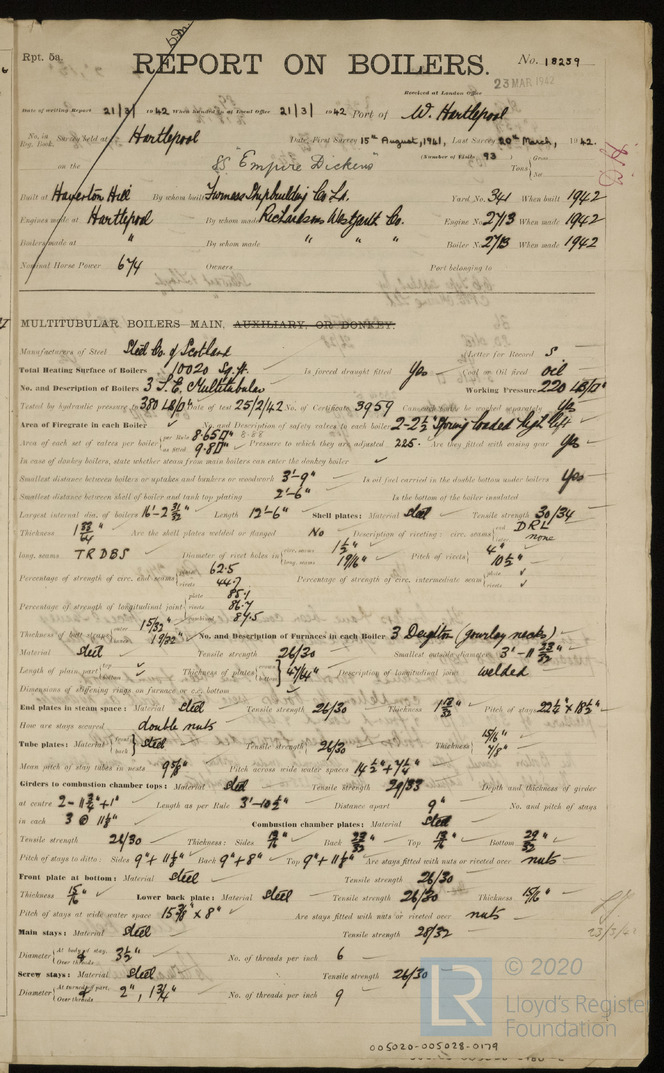 Rpt. 5a.
REPORT ON BOILERS.
No. 18259
23 MAR 1942
Received at London Office
Date of writing Report 21/3/1942 When handed in at Local Office 21/3/1942 Port of W. Hartlepool
No. in Reg. Book. Survey held at Hartlepool Date, First Survey 15th August, 1941, Last Survey 20th March, 1942.
(Number of Visits 93) Gross
on the SS "Empire Dickens" Tons Net
Built at Haverton Hill By whom built Furness Shipbuilding Co Ld. Yard No. 341 When built 1942
Engines made at Hartlepool By whom made Richardsons Westgarth Co. Engine No. 2713 When made 1942
Boilers made at " By whom made " " " Boiler No. 2713 When made 1942
Nominal Horse Power 674 Owners Port belonging to
MULTITUBULAR BOILERS MAIN, AUXILIARY, OR DONKEY.
Manufacturers of Steel Steel Co. of Scotland (Letter for Record S
Total Heating Surface of Boilers 10020 Sq. ft. Is forced draught fitted Yes Coal or Oil fired oil
No. and Description of Boilers 3 S.E. Multitubular Working Pressure 220 LB/□"
Tested by hydraulic pressure to 380 LB/□" Date of test 25/2/42 No. of Certificate 3959 Can each boiler be worked separately Yes
Area of Firegrate in each Boiler No. and Description of safety valves to each boiler 2-2½" Spring loaded high lift
Area of each set of valves per boiler per Rule 8.65□" as fitted 9.8□" Pressure to which they are adjusted 225. Are they fitted with easing gear Yes
In case of donkey boilers, state whether steam from main boilers can enter the donkey boiler
Smallest distance between boilers or uptakes and bunkers or woodwork 3'-9" Is oil fuel carried in the double bottom under boilers Yes
Smallest distance between shell of boiler and tank top plating 2'-6" Is the bottom of the boiler insulated
Largest internal dia. of boilers 16'-2 31/32" Length 12'-6" Shell plates: Material steel Tensile strength 30/34
Thickness Are the shell plates welded or flanged No Description of riveting: circ. seams end DRL inter. none
long. seams TRDBS Diameter of rivet holes in circ. seams 1½" long. seams 1 9/16" Pitch of rivets 4" 10½"
Percentage of strength of circ. end seams plate 62.5 rivets 44.7 Percentage of strength of circ. intermediate seam plate rivets
Percentage of strength of longitudinal joint plate 85.1 rivets 86.7 combined 87.5
Thickness of butt straps outer 15/32" inner 1 9/32" No. and Description of Furnaces in each Boiler 3 Deighton (gourlay necks)
Material steel Tensile strength 26/30 Smallest outside diameter 3'-11 23/32"
Length of plain part top bottom Thickness of plates 47/64" Description of longitudinal joint welded
Dimensions of stiffening rings on furnace or c.c. bottom
End plates in steam space: Material steel Tensile strength 26/30 Thickness Pitch of stays 22½" x 18½"
How are stays secured double nuts
Tube plates: Material front back steel Tensile strength 26/30 Thickness 15/16" 7/8"
Mean pitch of stay tubes in nests 9⅝" Pitch across wide water spaces 14½" + 7¼"
Girders to combustion chamber tops: Material steel Tensile strength 29/33 Depth and thickness of girder
at centre 2 - 11¾" + 1" Length as per Rule 3'-10½" Distance apart 9" No. and pitch of stays
in each 3 @ 11⅛" Combustion chamber plates: Material steel
Tensile strength 26/30 Thickness: Sides 13/16" Back 23/32" Top 13/16" Bottom 29/32"
Pitch of stays to ditto: Sides 9" + 11⅛" Back 9" + 8" Top 9" + 11⅛" Are stays fitted with nuts or riveted over nuts
Front plate at bottom: Material steel Tensile strength 26/30
Thickness 15/16" Lower back plate: Material steel Tensile strength 26/30 Thickness 15/16"
Pitch of stays at wide water space 15⅜" x 8" Are stays fitted with nuts or riveted over nuts
Main stays: Material steel Tensile strength 28/32
Diameter At body of stay, Over threads 3½" No. of threads per inch 6
Screw stays: Material steel Tensile strength 26/30
Diameter At turned off part, Over threads 2", 1¾" No. of threads per inch 9
23/3/42
© 2020
LR
Lloyd's Register
Foundation
005020-005028-0179